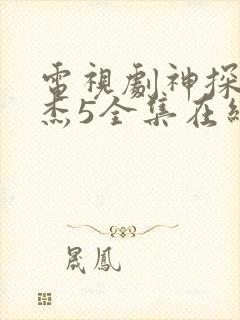 電視劇神探
杰5全集在
晟鳳